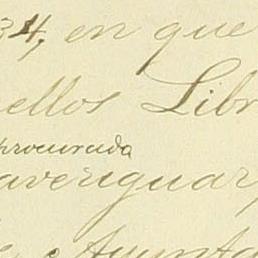 34, en que
ellos Libr
procurado
averiguar,
e Ayunta